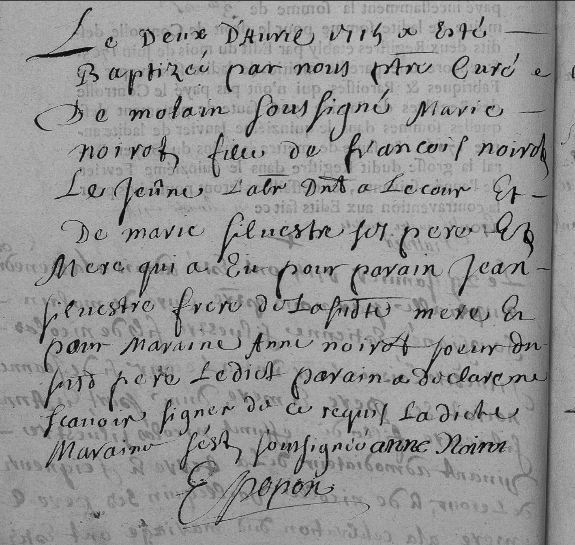 Le Deux D'Avril 1715 a Esté
Baptizée par nous ptre Curé
De molain soussigné Marie
noirot fille de francois noirot
Le Jeune Labr Dnt a Lecour Et
De marie silvestre ses pere Et
Mere qui a Eu pour parain Jean
silvestre frere de La sudte mere Et
pour Maraine Anne noirot soeur du
susd pere Ledict parain a declare ne
scavoir signer de ce requis Ladicte
Maraine s'est soussignée anne Noirot
Popon